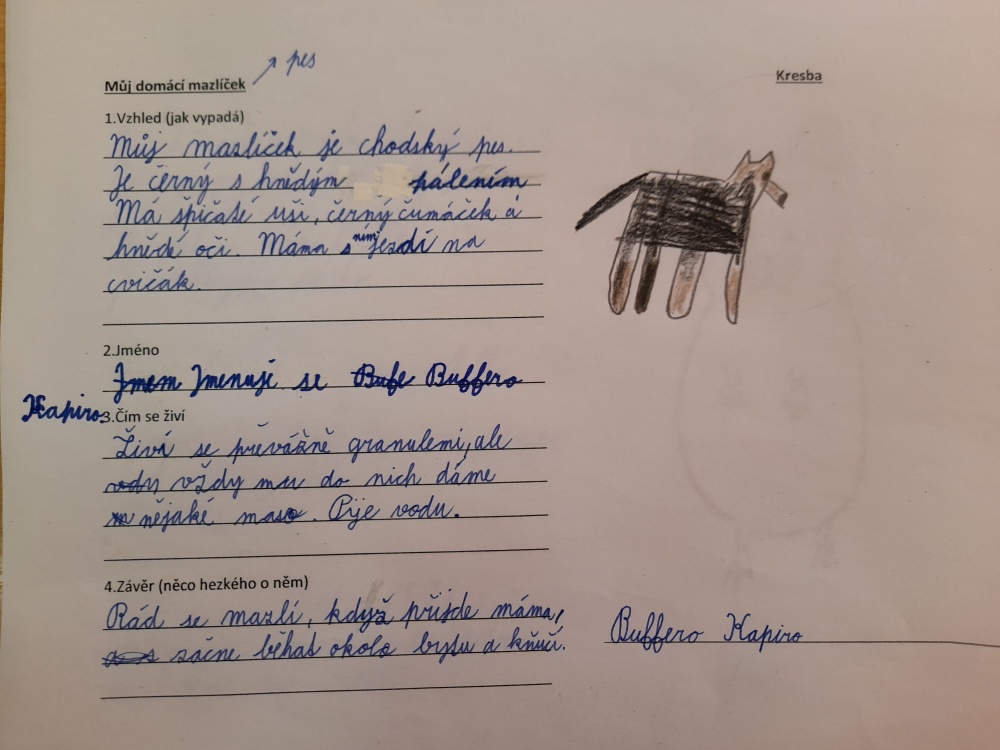 Můj domácí mazlíček
pes
Kresba
1.Vzhled (jak vypadá)
Můj mazlíček je chodský pes.
Je černý s hnědým pálením
Má špičaté uši, černý čumáček a
hnědé oči. Máma s ním jezdí na
cvičák.
2.Jméno
Jmem Jmenuji se Bufe Buffero
Kapiro.
3.Čím se živí
Živí se převážně granulemi, ale
vždy mu do nich dáme
nějaké maso. Pije vodu.
4.Závěr (něco hezkého o něm)
Rád se mazlí, když přijde máma,
začne běhat okolo bytu a kňučí.
Buffero Kapiro